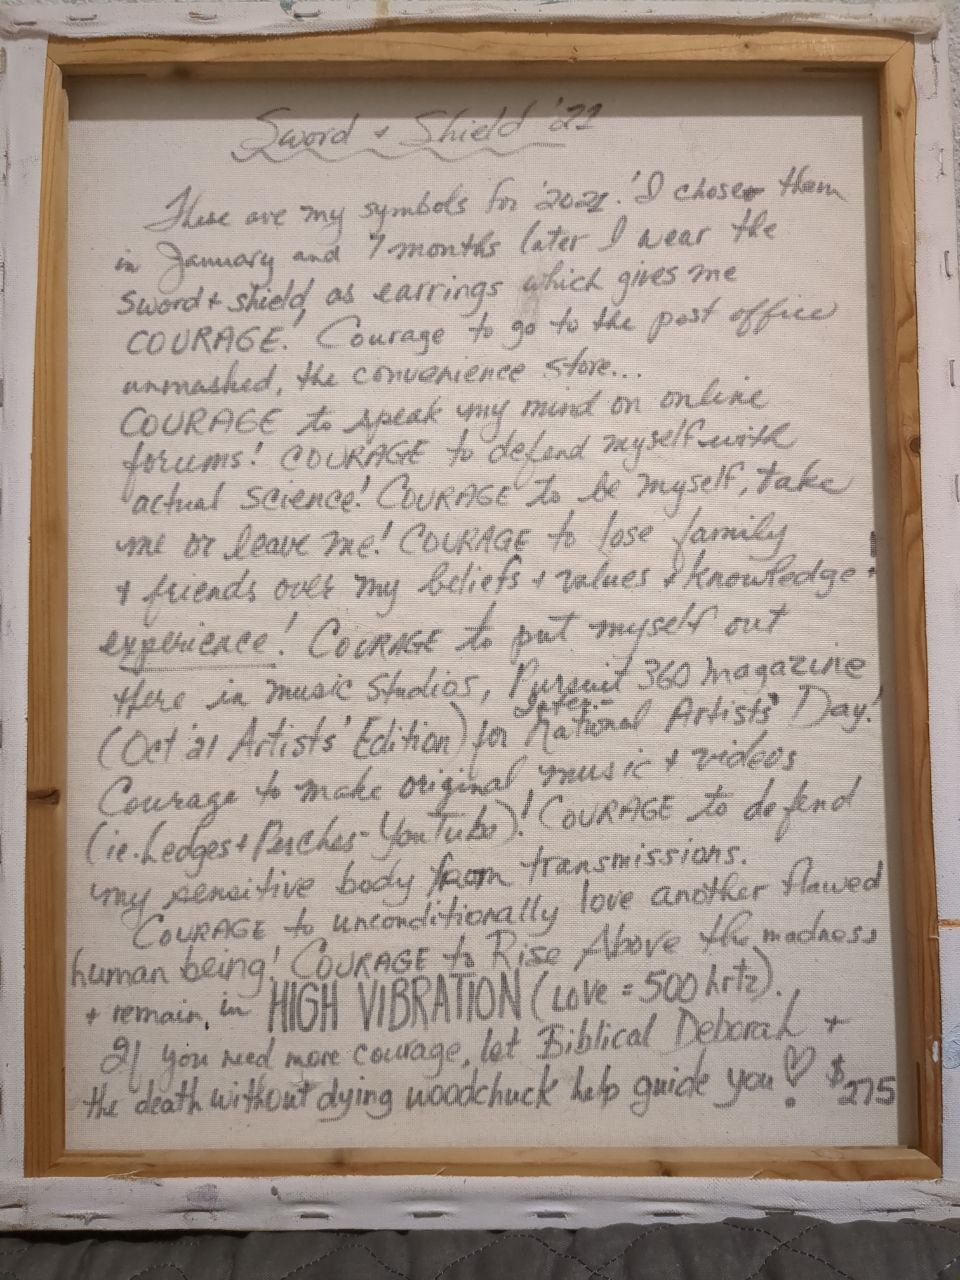 Sword + Shield '21
These are my symbols for '2021. I chose them
in January and 7 months later I wear the
sword + shield, as earrings which gives me
COURAGE! Courage to go to the post office
unmasked, the convenience store...
COURAGE to speak my mind on online
forums! COURAGE to defend myself with
actual science! COURAGE to be myself, take
me or leave me! COURAGE to lose family
+ friends over my beliefs + values + knowledge +
experience! COURAGE to put myself out
there in music studios, Pursuit 360 Magazine
(Oct '21 Artists' Edition) for International Artists' Day!
Courage to make original music + videos
(ie. Ledges + Perches - YouTube)! COURAGE to defend
my sensitive body from transmissions.
COURAGE to unconditionally love another flawed
human being! COURAGE to Rise Above the madness
+ remain in HIGH VIBRATION (Love = 500 hrtz).
If you need more courage, let Biblical Deborah +
the death without dying woodchuck help guide you! ♡ $275